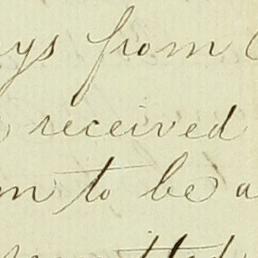 ys from
received
m to be a